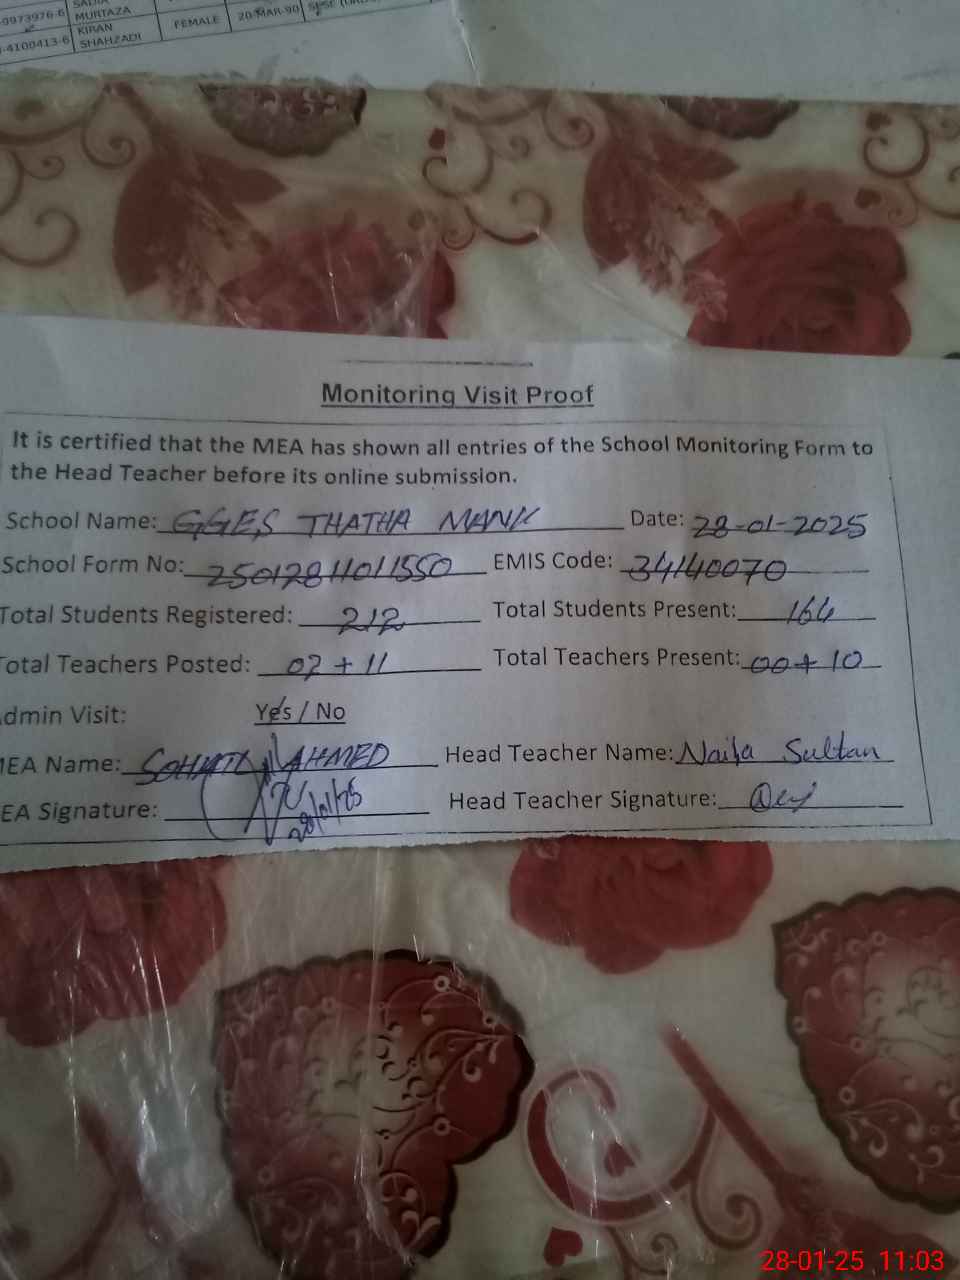 -0973976-6 SADIA MURTAZA
-4100413-6 KIRAN SHAHZADI FEMALE 20-MAR-90
Monitoring Visit Proof
It is certified that the MEA has shown all entries of the School Monitoring Form to
the Head Teacher before its online submission.
School Name: GGES THATHA MANK Date: 28-01-2025
School Form No: 25012811011550 EMIS Code: 34140070
Total Students Registered: 212 Total Students Present: 164
Total Teachers Posted: 02 + 11 Total Teachers Present: 00 + 10
dmin Visit: Yes / No
MEA Name: SOHAIL AHMED Head Teacher Name: Naila Sultan
EA Signature: 28/01/25 Head Teacher Signature:
28-01-25 11:03